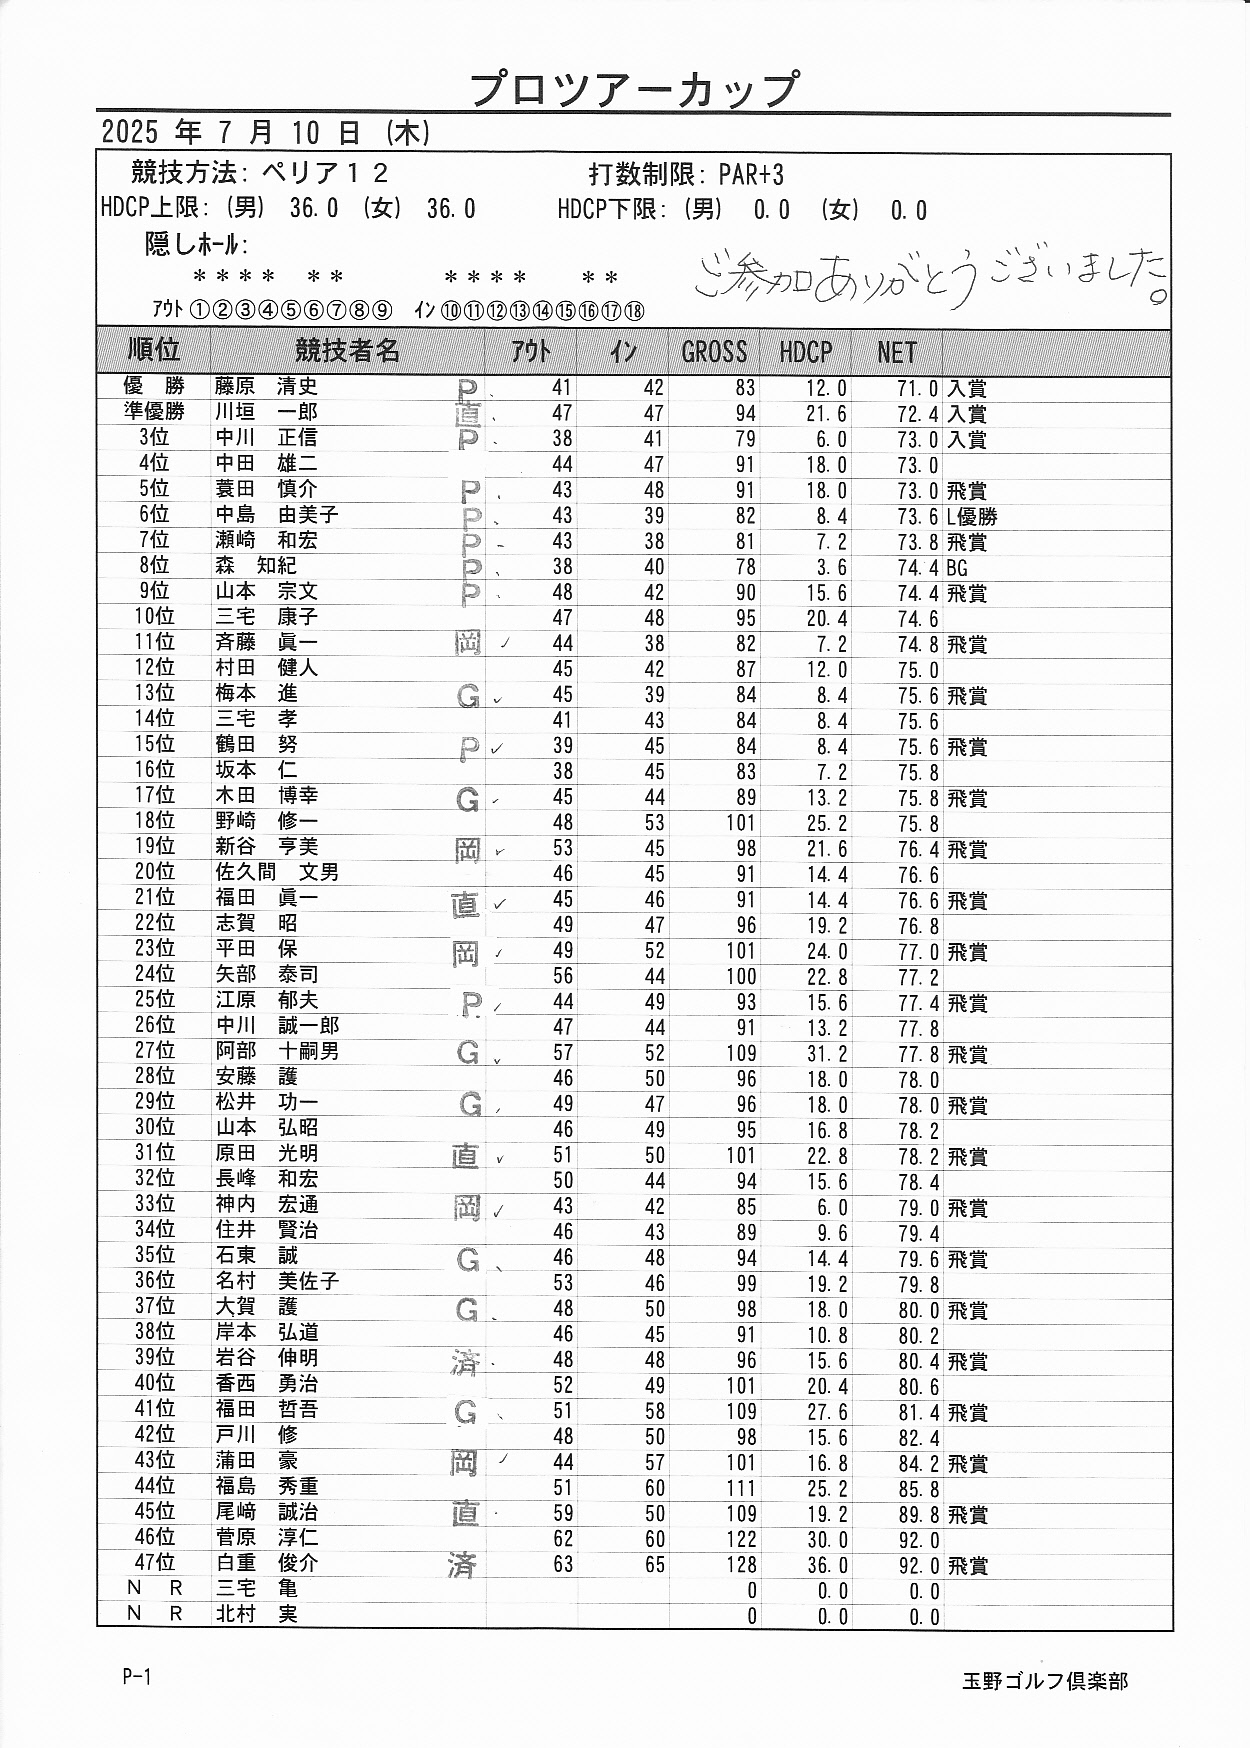 プロツアーカップ
2025 年 7 月 10 日 (木)
競技方法: ペリア12 打数制限: PAR+3
HDCP上限: (男) 36.0 (女) 36.0 HDCP下限: (男) 0.0 (女) 0.0
隠しホール:
ご参加ありがとうございました。
* * * * * * * * * * * *
アウト ①②③④⑤⑥⑦⑧⑨ イン ⑩⑪⑫⑬⑭⑮⑯⑰⑱
順位 競技者名 アウト イン GROSS HDCP NET
優 勝 藤原 清史 P 41 42 83 12.0 71.0 入賞
準優勝 川垣 一郎 直 47 47 94 21.6 72.4 入賞
3位 中川 正信 P 38 41 79 6.0 73.0 入賞
4位 中田 雄二 44 47 91 18.0 73.0
5位 蓑田 慎介 P 43 48 91 18.0 73.0 飛賞
6位 中島 由美子 P 43 39 82 8.4 73.6 L優勝
7位 瀬崎 和宏 P 43 38 81 7.2 73.8 飛賞
8位 森 知紀 P 38 40 78 3.6 74.4 BG
9位 山本 宗文 P 48 42 90 15.6 74.4 飛賞
10位 三宅 康子 47 48 95 20.4 74.6
11位 斉藤 眞一 岡 44 38 82 7.2 74.8 飛賞
12位 村田 健人 45 42 87 12.0 75.0
13位 梅本 進 G 45 39 84 8.4 75.6 飛賞
14位 三宅 孝 41 43 84 8.4 75.6
15位 鶴田 努 P 39 45 84 8.4 75.6 飛賞
16位 坂本 仁 38 45 83 7.2 75.8
17位 木田 博幸 G 45 44 89 13.2 75.8 飛賞
18位 野崎 修一 48 53 101 25.2 75.8
19位 新谷 亨美 岡 53 45 98 21.6 76.4 飛賞
20位 佐久間 文男 46 45 91 14.4 76.6
21位 福田 眞一 直 45 46 91 14.4 76.6 飛賞
22位 志賀 昭 49 47 96 19.2 76.8
23位 平田 保 岡 49 52 101 24.0 77.0 飛賞
24位 矢部 泰司 56 44 100 22.8 77.2
25位 江原 郁夫 P 44 49 93 15.6 77.4 飛賞
26位 中川 誠一郎 47 44 91 13.2 77.8
27位 阿部 十嗣男 G 57 52 109 31.2 77.8 飛賞
28位 安藤 護 46 50 96 18.0 78.0
29位 松井 功一 G 49 47 96 18.0 78.0 飛賞
30位 山本 弘昭 46 49 95 16.8 78.2
31位 原田 光明 直 51 50 101 22.8 78.2 飛賞
32位 長峰 和宏 50 44 94 15.6 78.4
33位 神内 宏通 岡 43 42 85 6.0 79.0 飛賞
34位 住井 賢治 46 43 89 9.6 79.4
35位 石東 誠 G 46 48 94 14.4 79.6 飛賞
36位 名村 美佐子 53 46 99 19.2 79.8
37位 大賀 護 G 48 50 98 18.0 80.0 飛賞
38位 岸本 弘道 46 45 91 10.8 80.2
39位 岩谷 伸明 済 48 48 96 15.6 80.4 飛賞
40位 香西 勇治 52 49 101 20.4 80.6
41位 福田 哲吾 G 51 58 109 27.6 81.4 飛賞
42位 戸川 修 48 50 98 15.6 82.4
43位 蒲田 豪 岡 44 57 101 16.8 84.2 飛賞
44位 福島 秀重 51 60 111 25.2 85.8
45位 尾﨑 誠治 直 59 50 109 19.2 89.8 飛賞
46位 菅原 淳仁 62 60 122 30.0 92.0
47位 白重 俊介 済 63 65 128 36.0 92.0 飛賞
N R 三宅 亀 0 0.0 0.0
N R 北村 実 0 0.0 0.0
P-1 玉野ゴルフ倶楽部